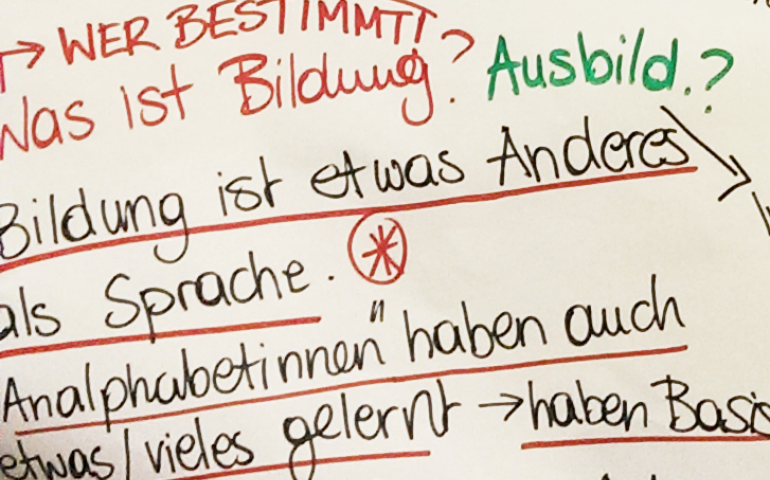 → WER BESTIMMT?
Was ist Bildung? Ausbild.?
Bildung ist etwas Anderes
als Sprache. *
Analphabetinnen" haben auch
etwas/vieles gelernt → haben Basis